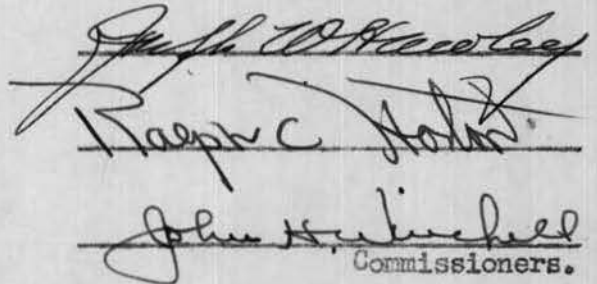 Joseph W Hawley
Ralph C Horton.
John H. Winchell
Commissioners.